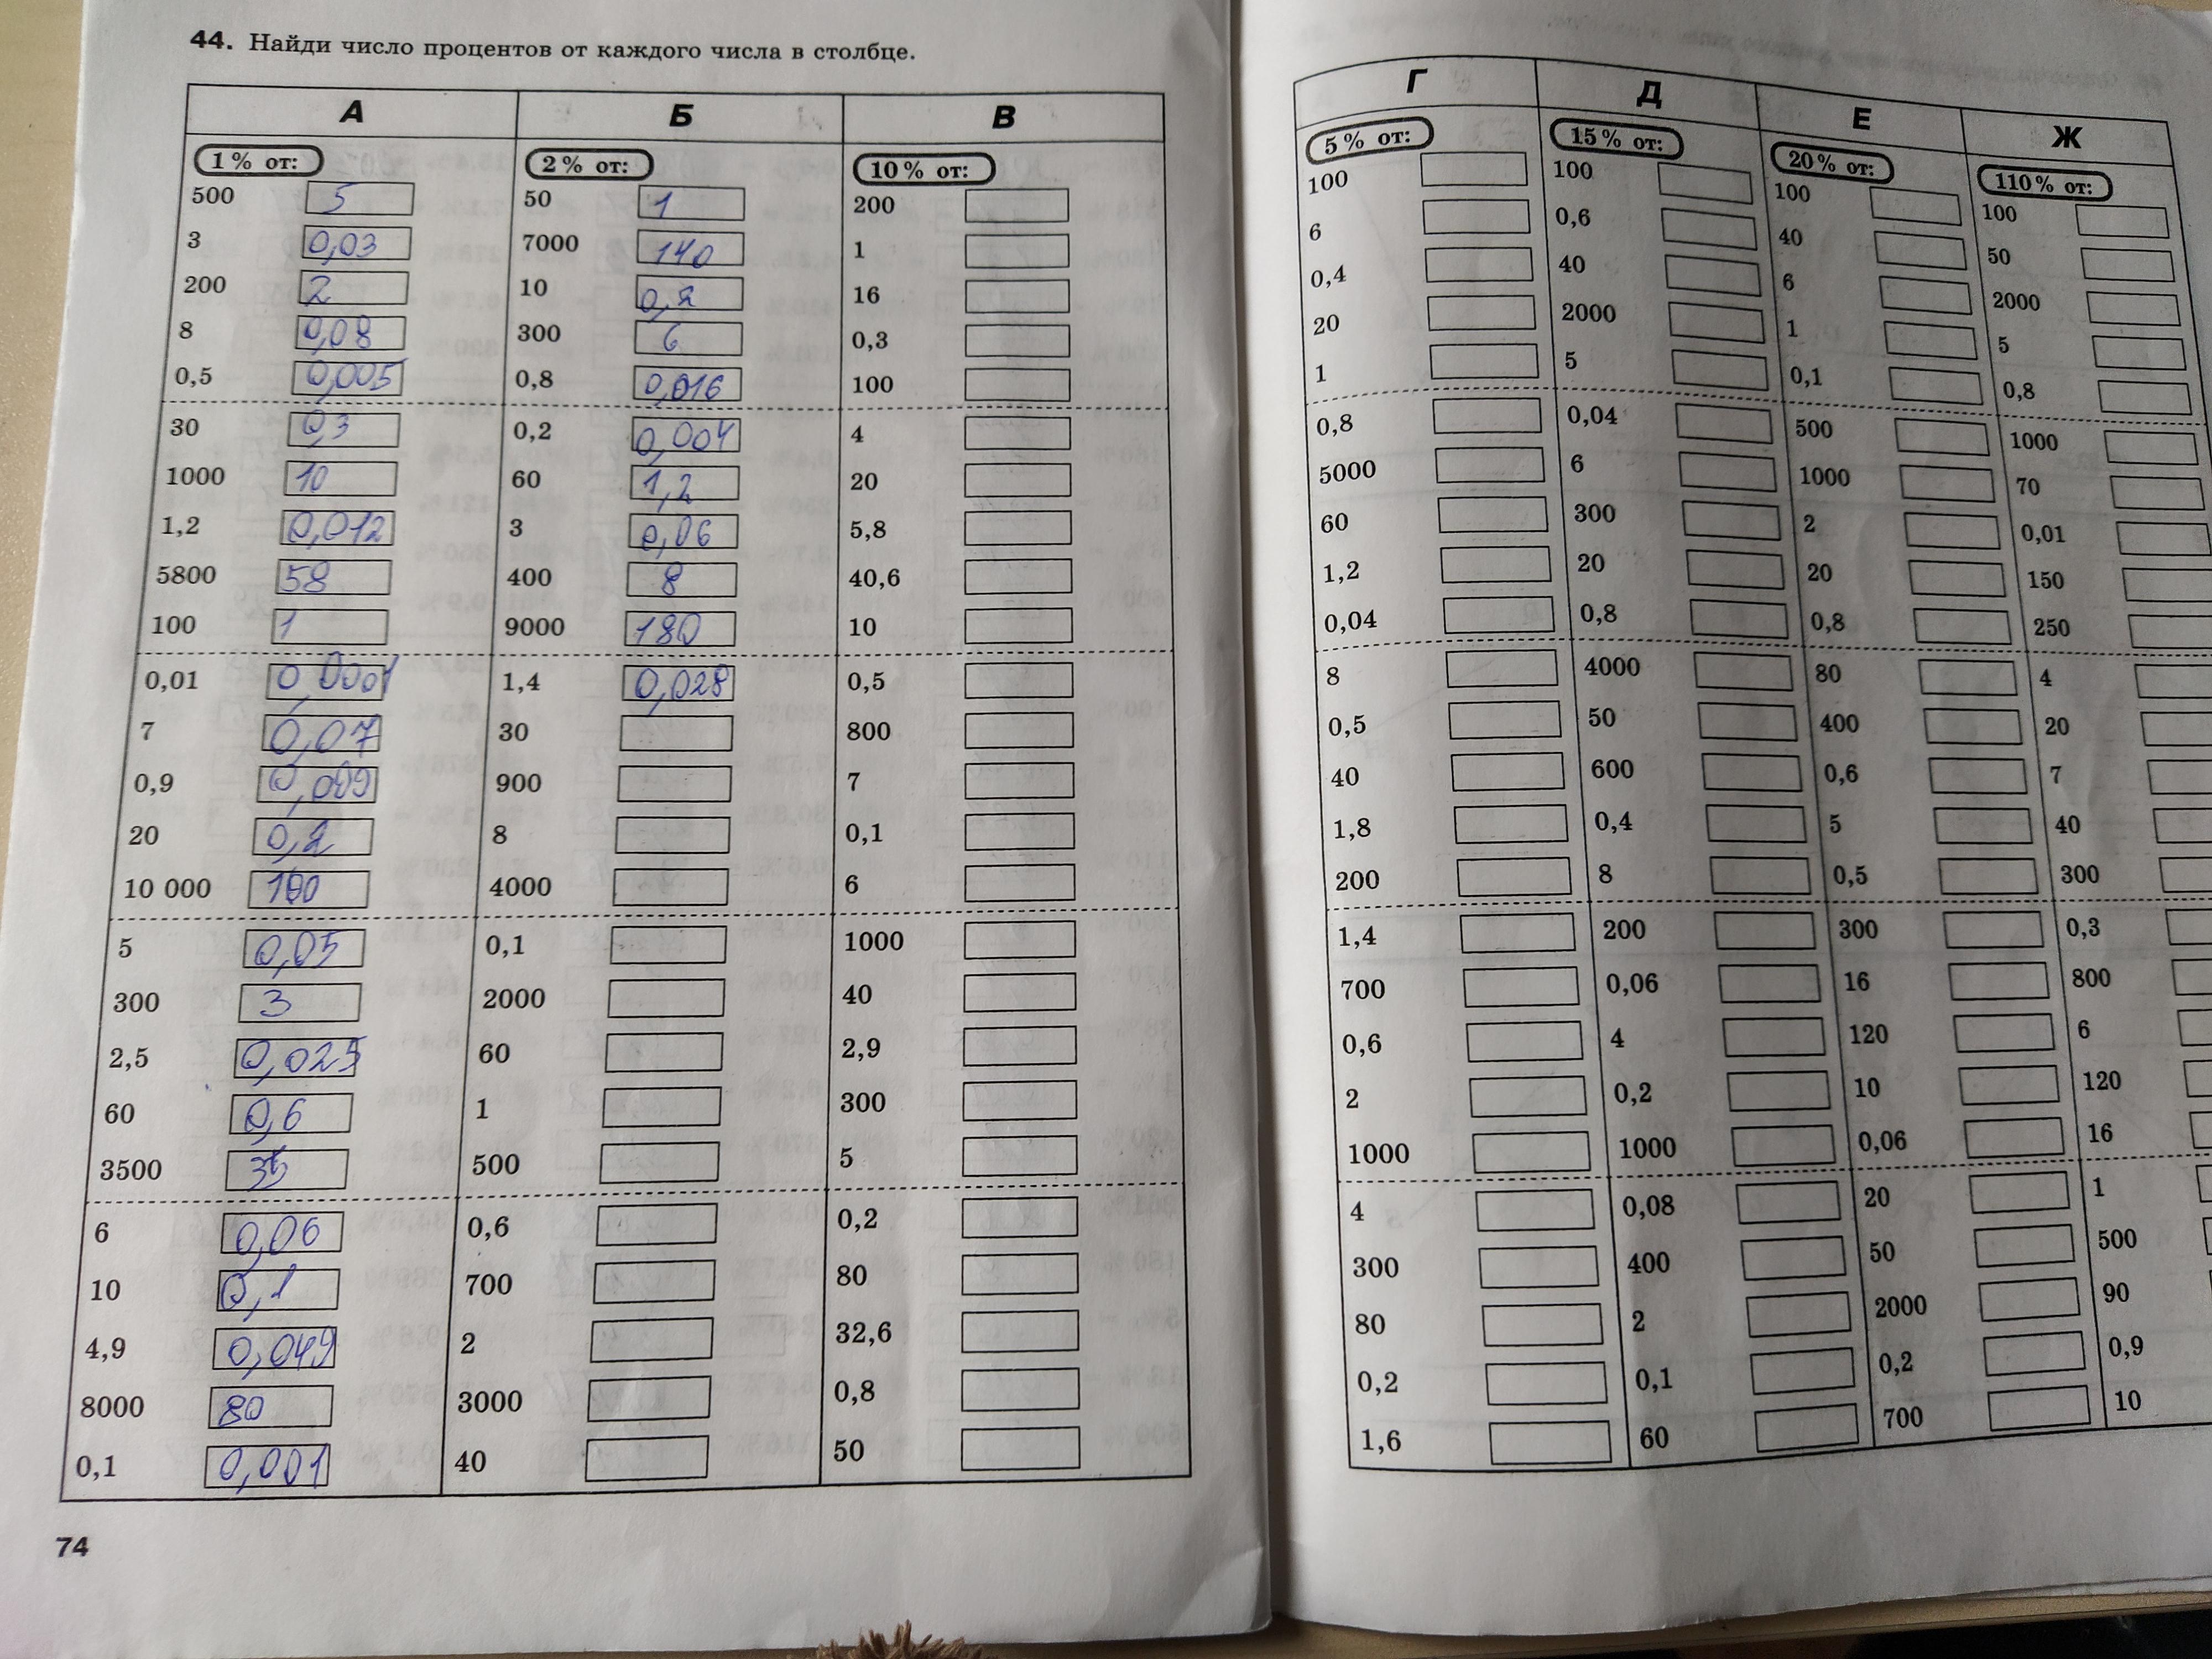 44. Найди число процентов от каждого числа в столбце.
А Б В
1 % от: 2 % от: 10 % от:
500 5 50 1 200
3 0,03 7000 140 1
200 2 10 0,2 16
8 0,08 300 6 0,3
0,5 0,005 0,8 0,016 100
30 0,3 0,2 0,004 4
1000 10 60 1,2 20
1,2 0,012 3 0,06 5,8
5800 58 400 8 40,6
100 1 9000 180 10
0,01 0,0001 1,4 0,028 0,5
7 0,07 30 800
0,9 0,009 900 7
20 0,2 8 0,1
10 000 100 4000 6
5 0,05 0,1 1000
300 3 2000 40
2,5 0,025 60 2,9
60 0,6 1 300
3500 35 500 5
6 0,06 0,6 0,2
10 0,1 700 80
4,9 0,049 2 32,6
8000 80 3000 0,8
0,1 0,001 40 50
74
Г Д Е Ж
5 % от: 15 % от: 20 % от: 110 % от:
100 100 100 100
6 0,6 40 50
0,4 40 6 2000
20 2000 1 5
1 5 0,1 0,8
0,8 0,04 500 1000
5000 6 1000 70
60 300 2 0,01
1,2 20 20 150
0,04 0,8 0,8 250
8 4000 80 4
0,5 50 400 20
40 600 0,6 7
1,8 0,4 5 40
200 8 0,5 300
1,4 200 300 0,3
700 0,06 16 800
0,6 4 120 6
2 0,2 10 120
1000 1000 0,06 16
4 0,08 20 1
300 400 50 500
80 2 2000 90
0,2 0,1 0,2 0,9
1,6 60 700 10